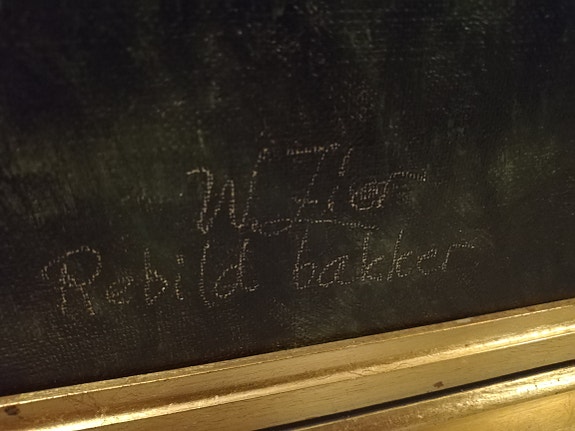 W Flor
Rebild bakker